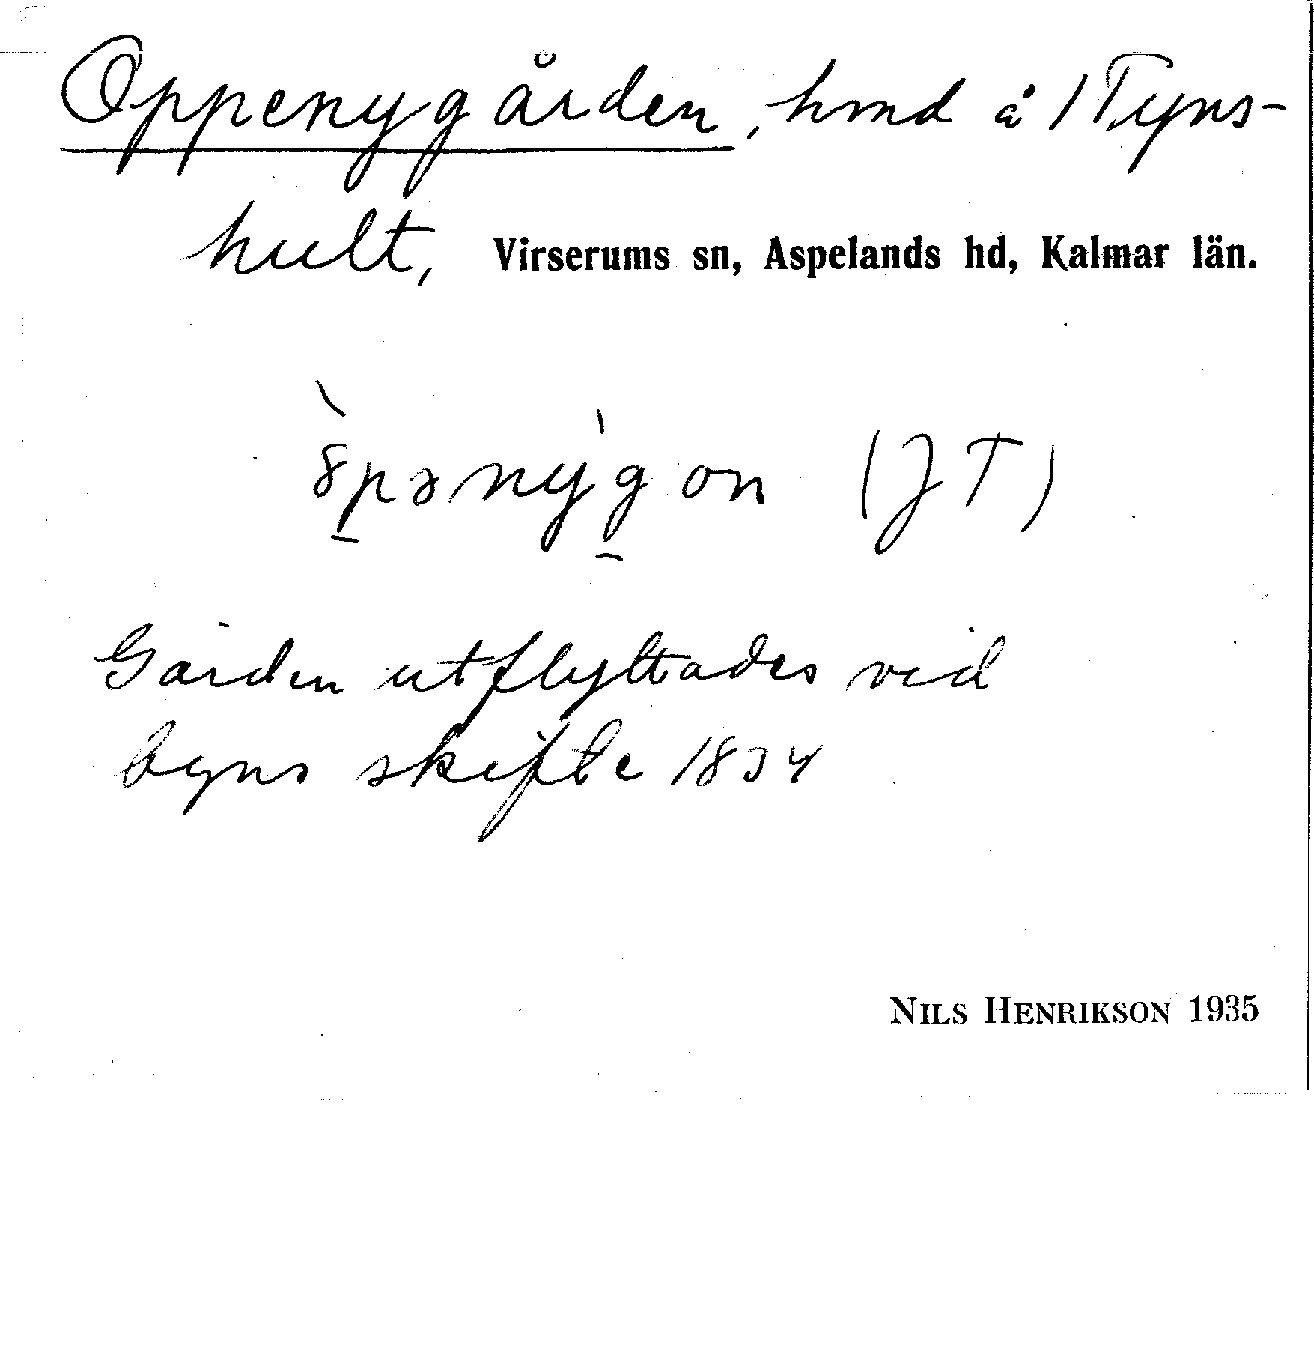 Oppenygården, hmd å 1 Tyns-
hult, Virserums sn, Aspelands hd, Kalmar län.
(JT)
Gården utflyttades vid
byns skifte 1834
NILS HENRIKSON 1935